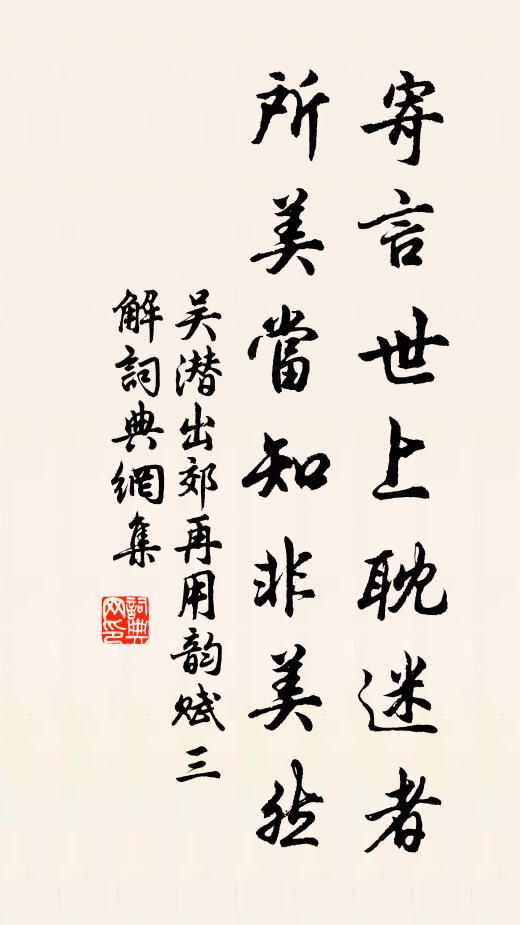 寄言世上耽迷者
所美當知非美然
吴潜出郊再用韵赋三
解詞典網集
詞典
网印